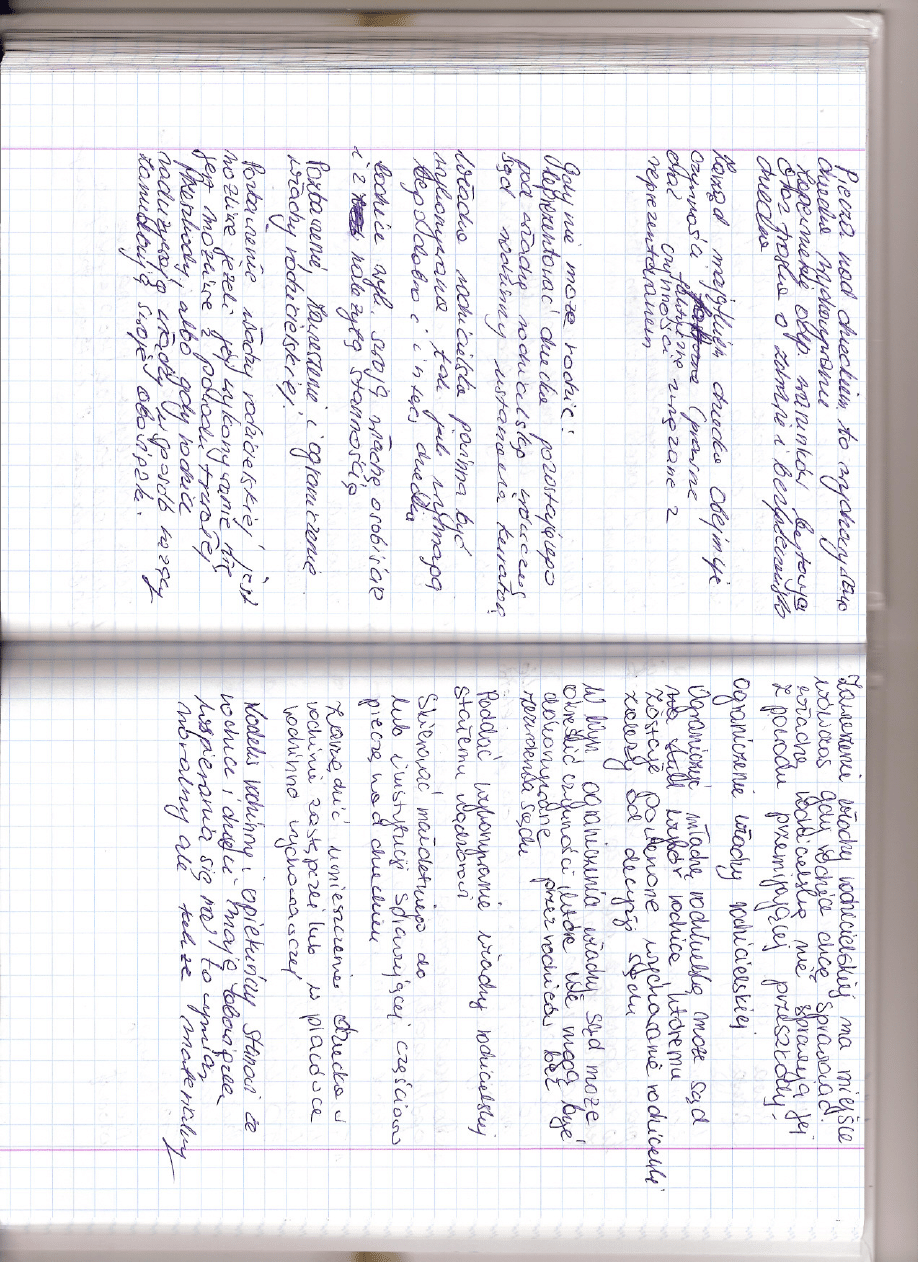 Piecza nad dzieckiem to wychowywanie
dziecka wychowywanie
zapewnienie odp. warunków bytowya
oraz troska o zdrowie i bezpieczeństwo
dziecka
Zarząd majątkiem dziecka obejmuje
czynności faktyczne (prawne
oraz czynności związane z
reprezentowaniem
Gdy nie może rodzic
reprezentować dziecka pozostającego
pod władzą rodzicielską wówczas
sąd rodzinny ustanawia kuratora
Władza rodzicielska powinna być
wykonywana tak jak wymaga
tego dobro i interes dziecka
Rodzice wyk. swoją władzę osobiście
i z należytą starannością
Pozbawienie, zawieszenie i ograniczenie
władzy rodzicielskiej.
Pozbawienie władzy rodzicielskiej jest
możliwe jeżeli jej wykonywanie nie
jest możliwe z powodu trwałej
przeszkody albo gdy rodzice
nadużywają władzy w sposób rażący
zaniedbują swoje obowiązki.
Zawieszenie władzy rodzicielskiej ma miejsce
wówczas gdy rodzice chcę sprawować
władzę rodzicielską nie sprawują jej
z powodu przemijającej przeszkody.
Ograniczenie władzy rodzicielskiej
Ograniczyć władzę rodzicielską może sąd
wybór rodzica któremu
zostaje powierzone wychowanie rodzicielki
zależy od decyzji sądu
W wyn. ograniczenia władzy sąd może
określić czynności które nie mogą być
dokonywane przez rodziców bez
zezwolenia sądu
Poddać wykonywanie władzy rodzicielskiej
stałemu nadzorowi
Skierować małoletniego do
lub instytucji sprawującej częściową
pieczę nad dzieckiem
Zarządzić umieszczenie dziecka w
rodzinie zastępczej lub w placówce
rodzinno wychowawczej
Kodeks rodzinny i opiekuńczy stanowi że
rodzice i dzieci mają obowiązek
wspierania się ma to wymiar
moralny ale także materialny